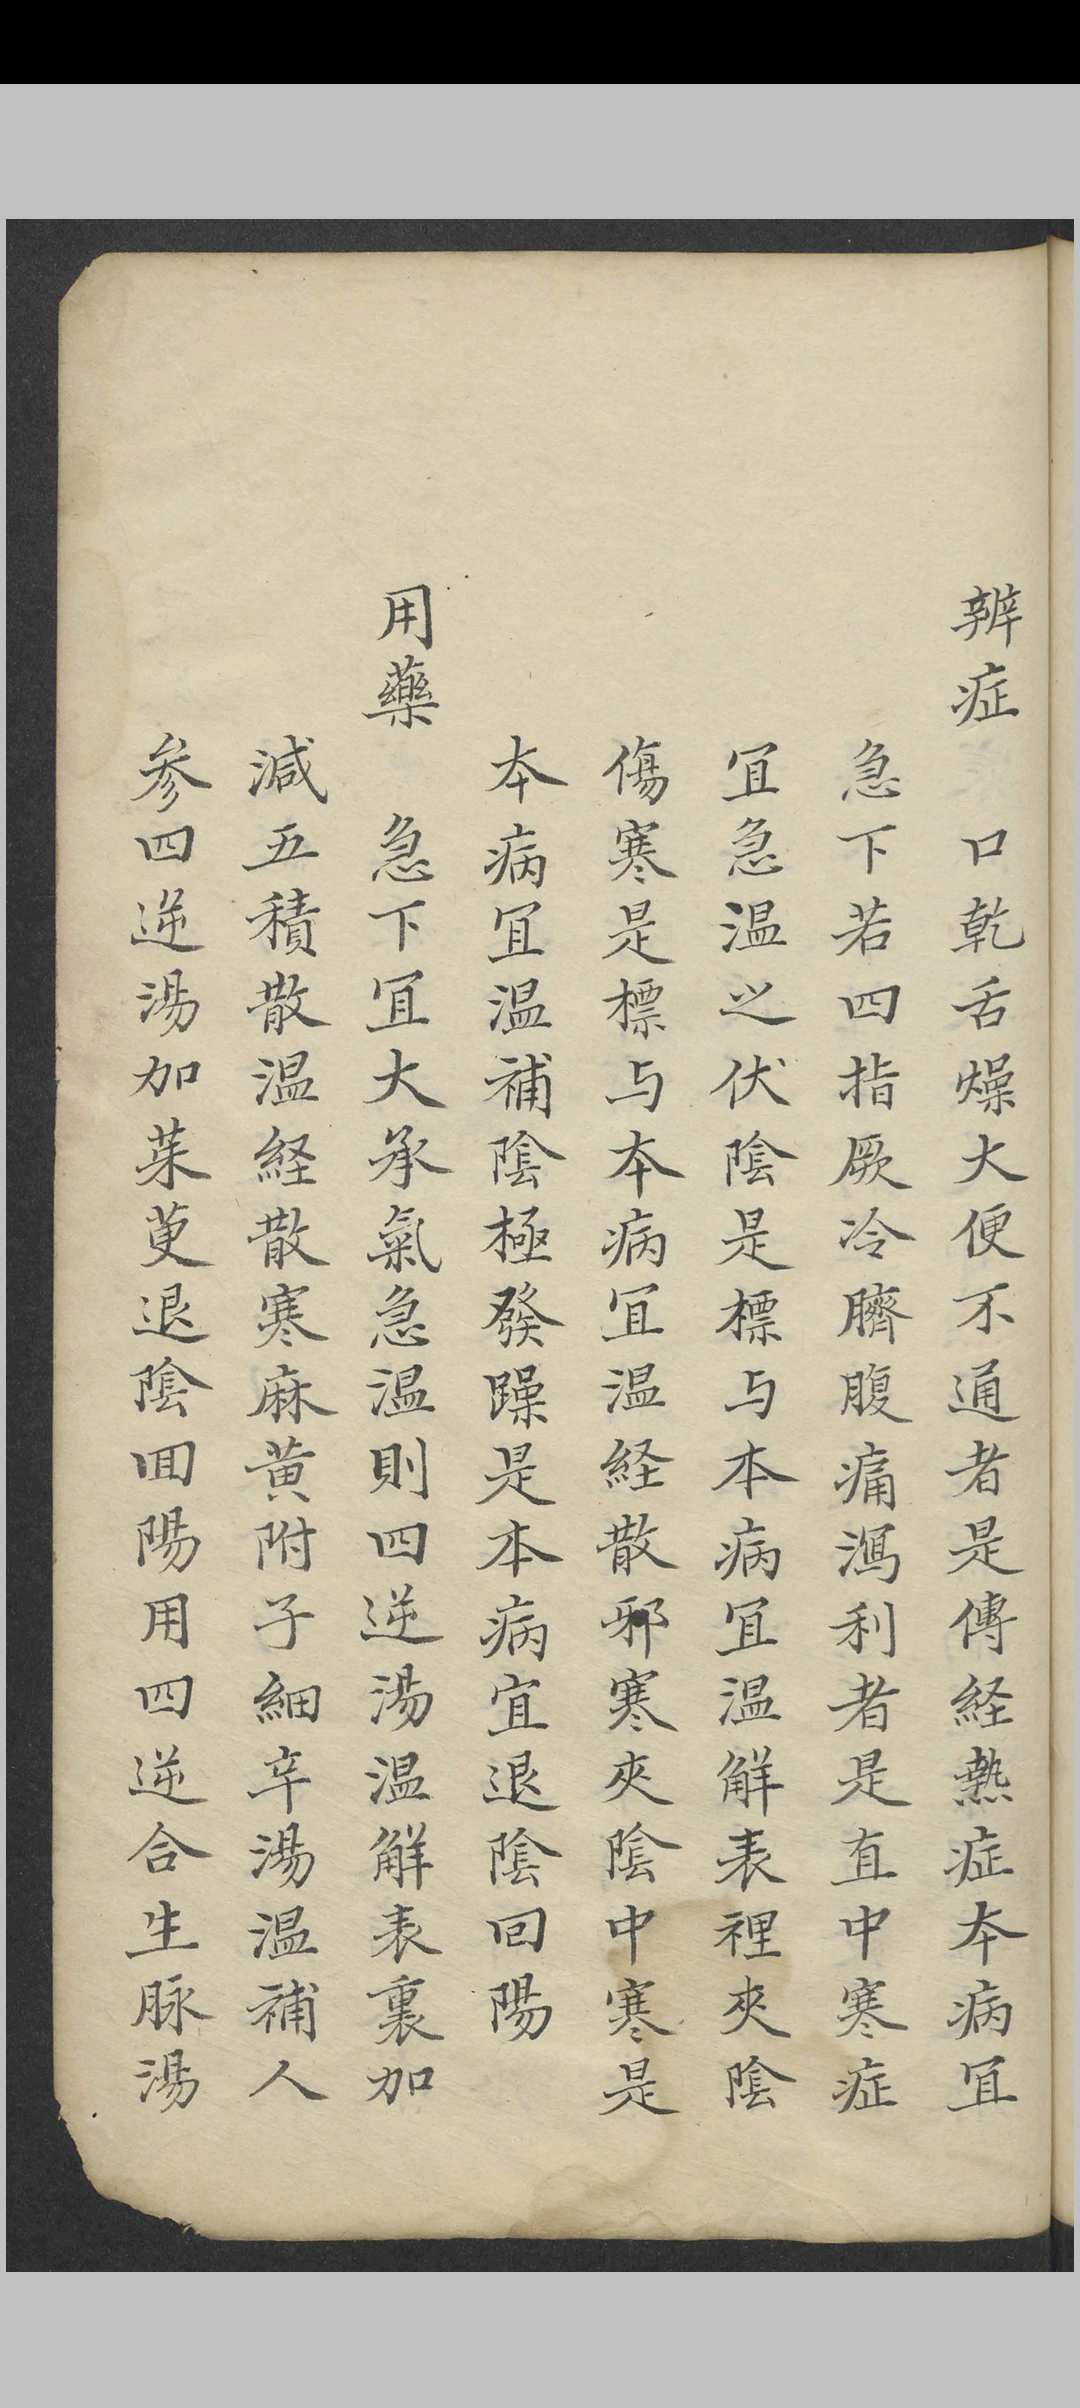 辨症　口乾舌燥大便不通者是傳経熱症本病冝
急下若四指厥冷臍腹痛瀉利者是直中寒症
冝急温之伏陰是標与本病冝温解表裡夾陰
傷寒是標与本病冝温経散邪寒夾陰中寒是
本病冝温補陰極發躁是本病宜退陰回陽
用藥　急下冝大承氣急温則四逆湯温解表裏加
減五積散温経散寒麻黄附子細辛湯温補人
参四逆湯加茱萸退陰囬陽用四逆合生脉湯